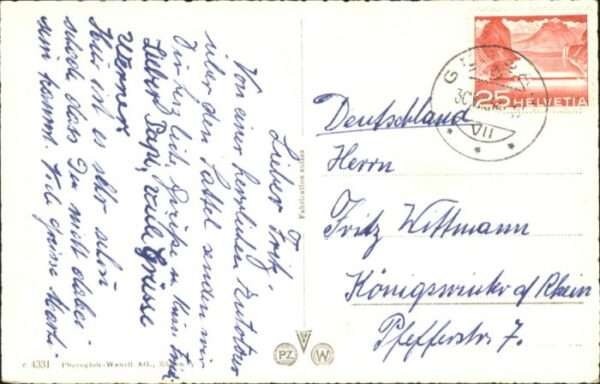 Lieber Fritz.
Von einer herrlichen Autotour
über den Sattel senden wir
Dir herzliche Grüße u. Kuss
Lieber Papi, viele Grüsse
Werner
Hier ist es sehr schön
schade dass Du nicht dabei
sein kannst. Viele Grüsse
Fabrication suisse
c 4331 Photoglob-Wehrli AG.,
PZ
W
25 HELVETIA
30
VII
Deutschland
Herrn
Fritz Wittmann
Königswinter a/ Rhein
Pfefferstr 7.